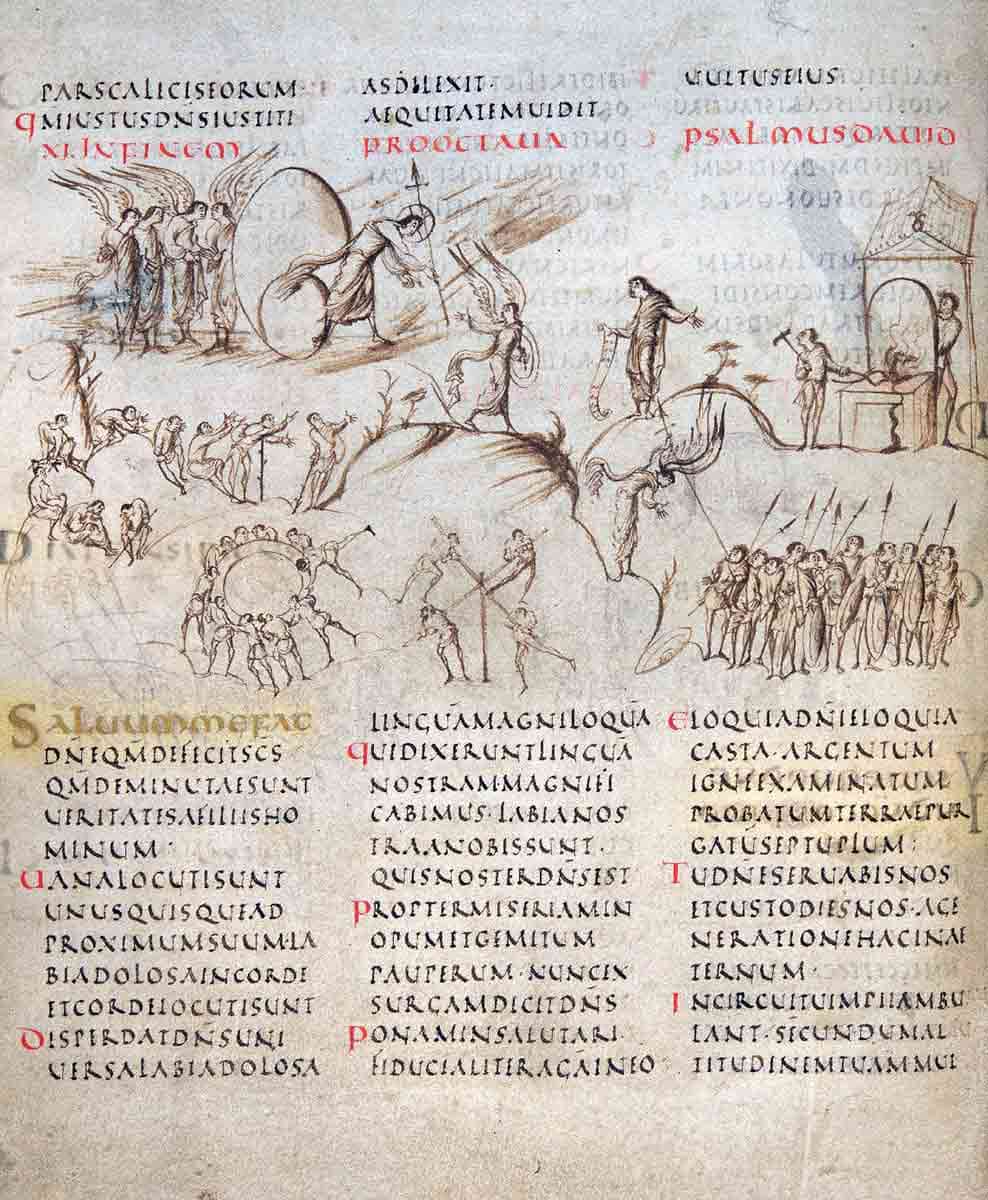 PARSCALICISEORUM·
QMIUSTUSDNSIUSTITI
ASDILEXIT·
AEQUITATEMUIDIT
UULTUSEIUS
XI INFINEM
PROOCTAUA
PSALMUSDAUID
SALUUMMEFAC
DNEQMDEFECITSCS
QMDEMINUTAESUNT
UERITATESAFILIISHO
MINUM:
UANALOCUTISUNT
UNUSQUISQUEAD
PROXIMUMSUUM·LA
BIADOLOSAINCORDE
ETCORDELOCUTISUNT
DISPERDATDNSUNI
UERSALABIADOLOSA
LINGUAMAGNILOQUA
QUIDIXERUNTLINGUA
NOSTRAMMAGNIFI
CABIMUS·LABIANOS
TRAANOBISSUNT·
QUISNOSTERDNSEST
PROPTERMISERIAMIN
OPUMETGEMITUM
PAUPERUM·NUNCEX
SURGAMDICITDNS
PONAMINSALUTARI·
FIDUCIALITERAGAINEO
ELOQUIADNIELOQUIA
CASTA·ARGENTUM
IGNEEXAMINATUM
PROBATUMTERRAEPUR
GATUSEPTUPLUM:
TUDNESERUABISNOS
ETCUSTODIESNOS·AGE
NERATIONEHACINAE
TERNUM·
INCIRCUITUIMPIIAMBU
LANT·SECUNDUMAL
TITUDINEMTUAMMUL